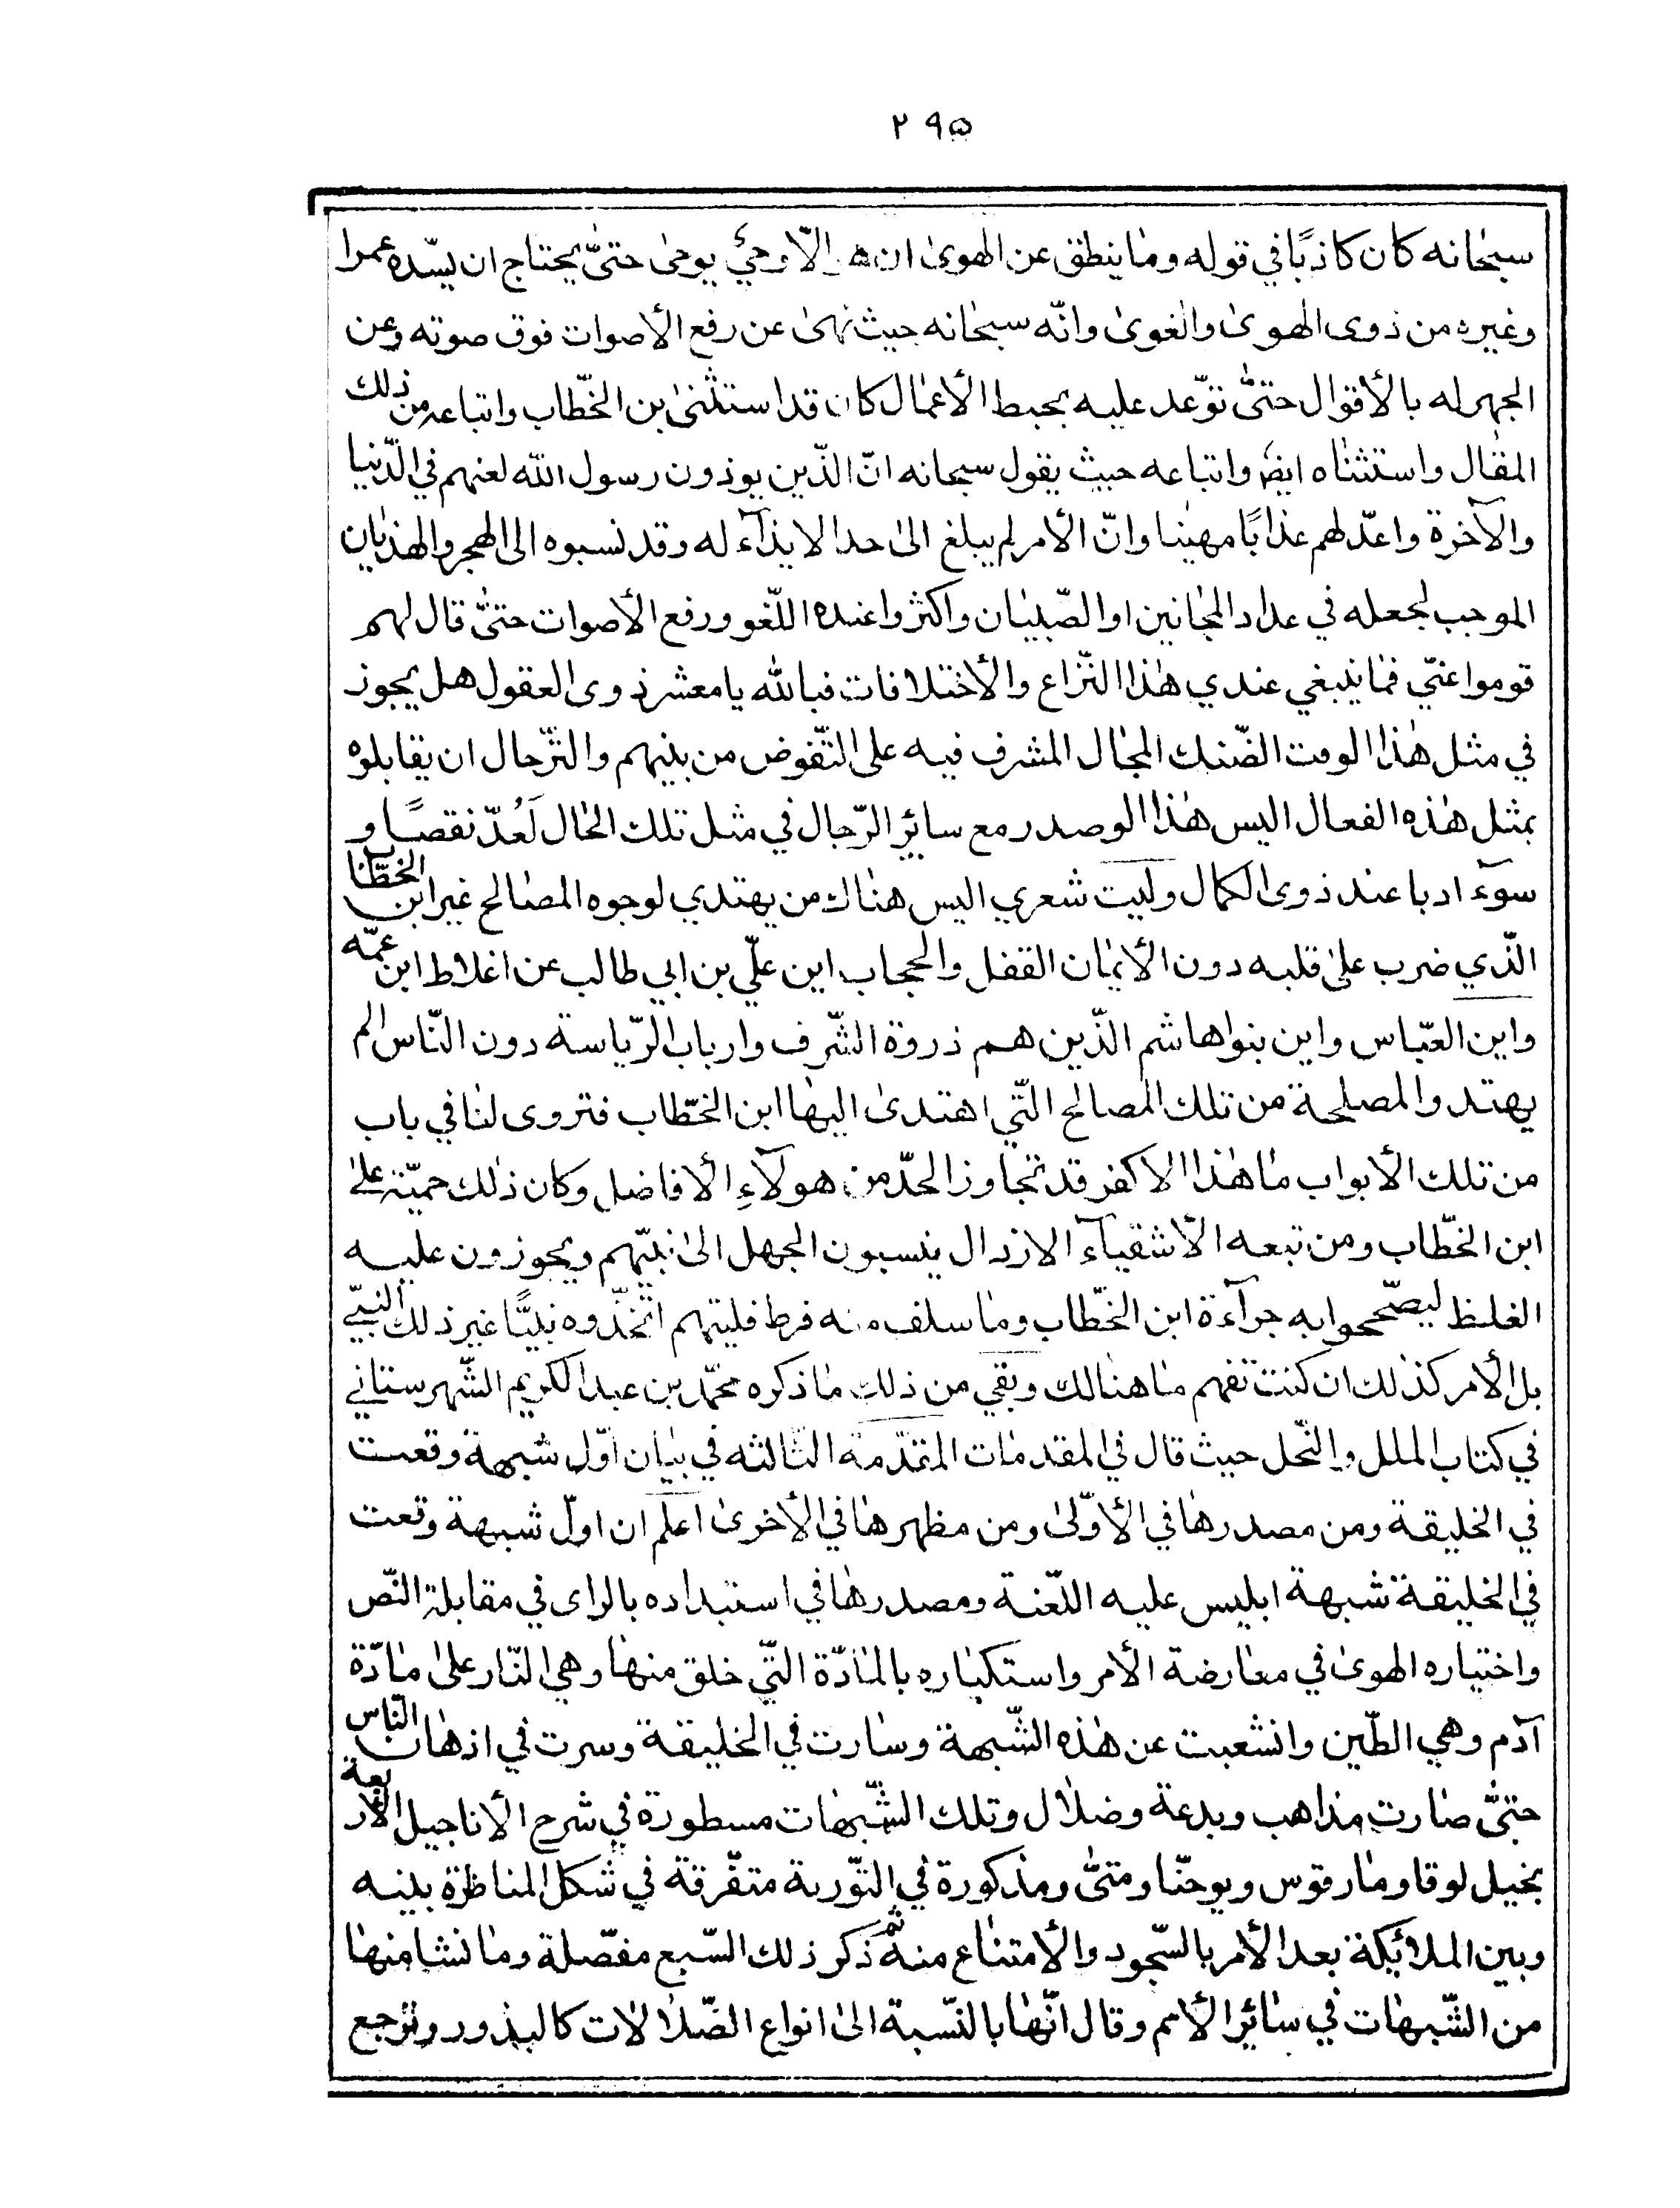 ۲۹۵
سبحانه كان كاذبًا في قوله وما ينطق عن الهوى ان هو الّا وحيٌ يوحى حتىّ يحتاج ان يسّده عمرا
وغيره من ذوى الهوى والغوى وانّه سبحانه حيث نهى عن رفع الأصوات فوق صوته وعن
الجهر له بالأقوال حتىّ توّعد عليه بحبط الأعمال كان قد استثنى بن الخّطاب واتباعه من ذلك
المقال واستثناه ايضا واتباعه حيث يقول سبحانه انّ الّذين يوذون رسول الله لعنهم في الّدنيا
والآخرة واعدّ لهم عذابًا مهينا وانّ الأمر لم يبلغ الى حد الايذآء له وقد نسبوه الى الهجر والهذيان
الموجب لجعله في عداد المجانين او الصّبيان واكثروا عنده اللّغو ورفع الأصوات حتىّ قال لهم
قوموا عنّي فما ينبغي عندي هذا النّزاع والأختلافات فبالله يا معشر ذوى العقول هل يجوز
في مثل هذا الوقت الضّنك المجال المشرف فيه على التّفوض من بينهم والتّرحال ان يقابلوه
بمثل هذه الفعال اليس هذا لو صدر مع سائر الرّجال في مثل تلك الحال لَعُدّ نقصًا و
سوٓء ادبا عند ذوى الكمال وليت شعري اليس هناك من يهتدي لوجوه المصالح غير ابن الخطّاب
الّذي ضرب على قلبه دون الأيمان القفل والحجاب اين علّي بن ابي طالب عن اغلاط ابن عمّه
واين العبّاس واين بنوا هاشم الّذين هم ذروة الشّرف وارباب الرّياسة دون النّاس الم
يهتدوا لمصلحة من تلك المصالح التّي اهتدى اليها ابن الخطّاب فتروى لنا في باب
من تلك الأبواب ما هذا الا كفر قد تجاوز الحدّ من هولآءِ الأفاضل وكان ذلك حميّة على
ابن الخطّاب ومن تبعه الأشقيآء الارذال ينسبون الجهل الى نبيّهم ويجوزون عليه
الغلط ليصّححوا به جرآءة ابن الخطّاب وما سلف منه فرط فليتهم اتّخذّوه نبيًّا غير ذلك النبيّ
بل الأمر كذلك ان كنت تفهم ما هنالك وبقي من ذلك ما ذكره محمّد بن عبد الكريم الشّهرستاني
في كتاب الملل والنّحل حيث قال في المقدمات المقدّمة الثالثه في بيان اوّل شبهة وقعت
في الخليقة ومن مصدرها في الأوّلى ومن مظهرها في الأخرى اعلم ان اولّ شبهة وقعت
في الخليقة شبهة ابليس عليه اللّعنة ومصدرها في استبداده بالراى في مقابلة النّص
واختياره الهوى في معارضة الأمر واستكباره بالمادّة التّي خلق منها وهي النّار على مادّة
آدم وهي الطّين وانشعبت عن هذه الشّبهة وسارت في الخليقة وسرت في اذهان النّاس
حتىّ صارت مذاهب وبدعة وضلال وتلك الشّبهات مسطورة في شرح الأناجيل الأربعة
بخيل لوقا ومارقوس ويوحنّا ومتىّ ومذكورة في التّورية متفّرقة في شكل المناظرة بينه
وبين الملائكة بعد الأمر بالسّجود والأمتناع منه ثمّ ذكر ذلك السّبع مفصّلة وما نشا منها
من الشّبهات في سائر الأمم وقال انّها بالنّسبة الى انواع الضّلالات كالبذور وترجع